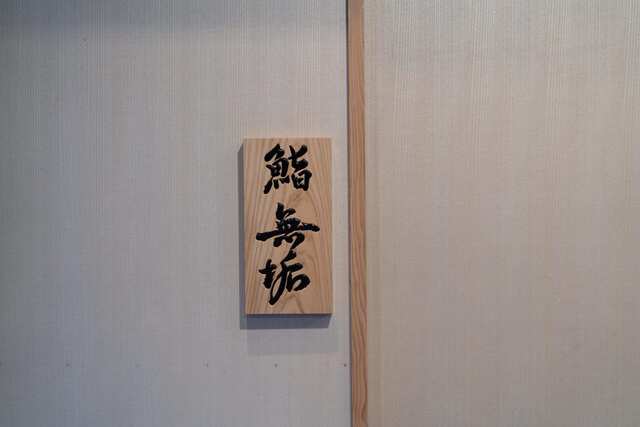 鮨
無
垢